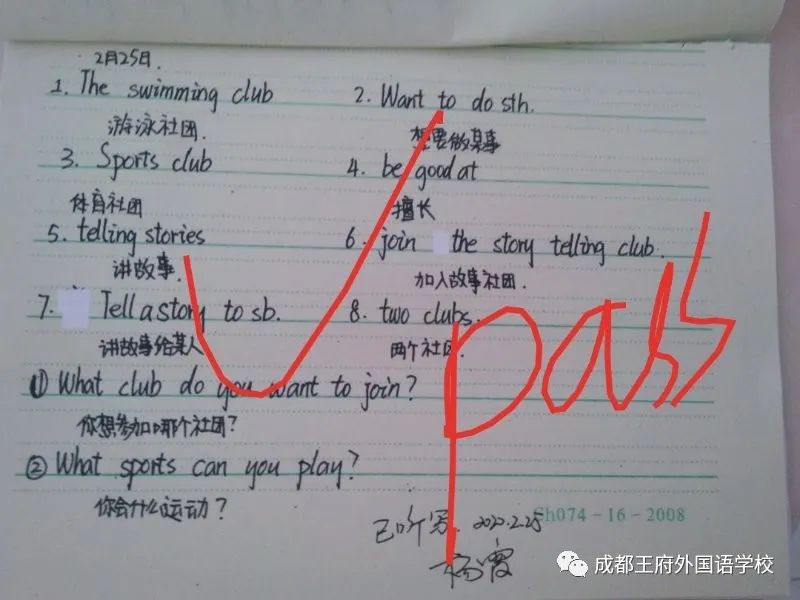 2月25日.
1. The swimming club 2. Want to do sth.
游泳社团. 想要做某事
3. Sports club 4. be good at
体育社团 擅长
5. telling stories 6. join the story telling club.
讲故事. 加入故事社团.
7. Tell a story to sb. 8. two clubs.
讲故事给某人 两个社团.
① What club do you want to join?
你想参加哪个社团?
② What sports can you play?
你会什么运动?
pass
Sh074-16-2008
已听写. 2020.2.25
杨霞
成都王府外国语学校